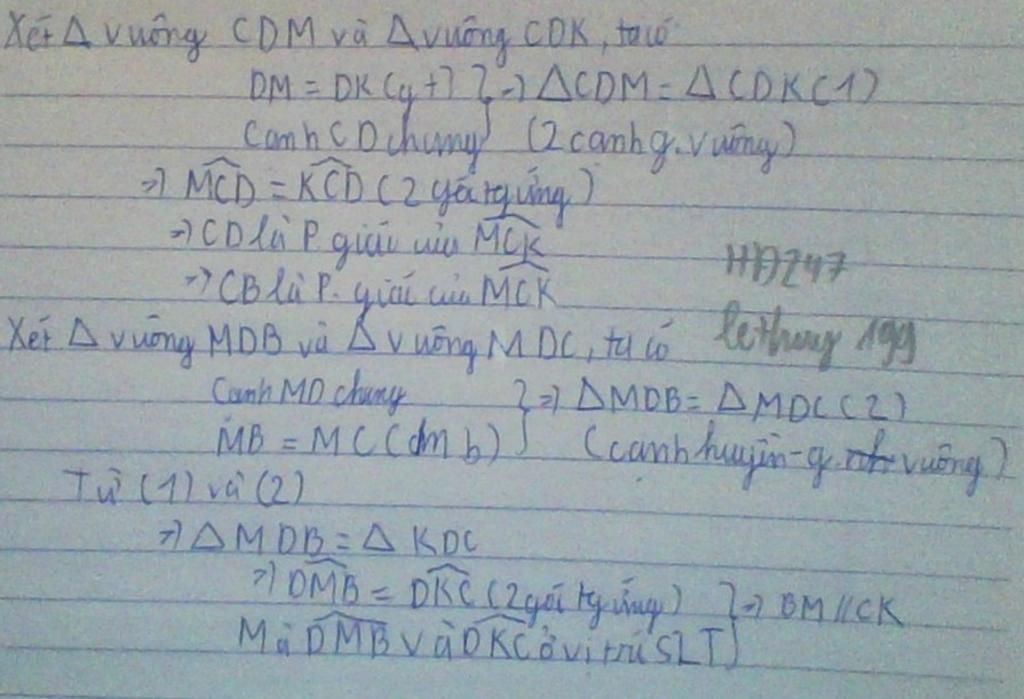 Xét Δ vuông CDM và Δ vuông CDK, ta có
DM = DK (gt) } => ΔCDM = ΔCDK (1)
Cạnh CD chung } (2 cạnh g. vuông)
=> MCD = KCD (2 góc tg ứng)
=> CD là P. giác của MCK
=> CB là P. giác của MCK
HD247
Xét Δ vuông MDB và Δ vuông MDC, ta có
lethuy 199
Cạnh MD chung } => ΔMDB = ΔMDC (2)
MB = MC (cm b) } (cạnh huyền - g. vuông)
Từ (1) và (2)
=> ΔMDB = ΔKDC
=> DMB = DKC (2 góc tg ứng) } => BM // CK
Mà DMB và DKC ở vị trí SLT }